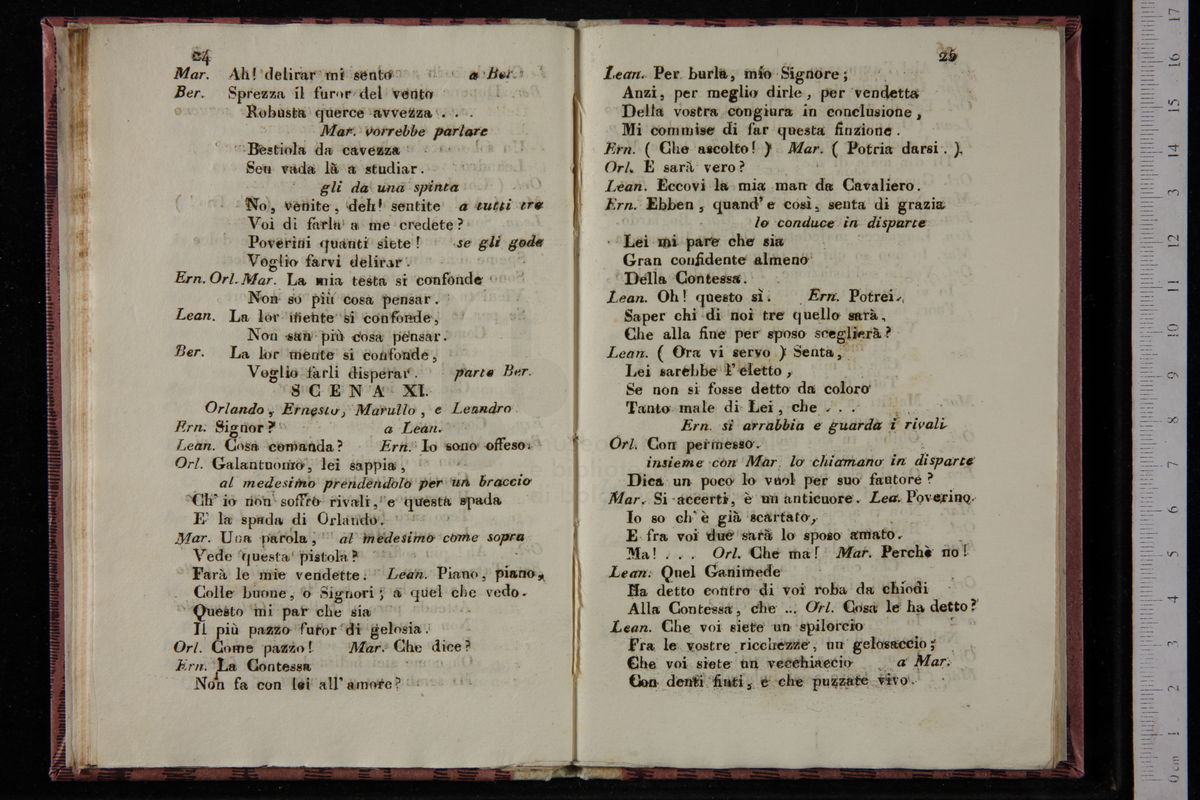 24
Mar. Ah! delirar mi sento a Ber.
Ber. Sprezza il furor del vento
Robusta querce avvezza . . .
Mar. vorrebbe parlare
Bestiola da cavezza
Sen vada là a studiar.
gli da una spinta
No, venite, deh! sentite a tutti tre
Voi di farla a me credete?
Poverini quanti siete! se gli gode
Voglio farvi delirar.
Ern. Orl. Mar. La mia testa si confonde
Non so più cosa pensar.
Lean. La lor mente si confonde,
Non san più cosa pensar.
Ber. La lor mente si confonde,
Voglio farli disperar. parte Ber.
SCENA XI.
Orlando, Ernesto, Marullo, e Leandro
Ern. Signor? a Lean.
Lean. Cosa comanda? Ern. Io sono offeso.
Orl. Galantuomo, lei sappia,
al medesimo prendendolo per un braccio
Ch' io non soffro rivali, e questa spada
E' la spada di Orlando.
Mar. Una parola, al medesimo come sopra
Vede questa pistola?
Farà le mie vendette. Lean. Piano, piano,
Colle buone, o Signori; a quel che vedo.
Questo mi par che sia
Il più pazzo furor di gelosia.
Orl. Come pazzo! Mar. Che dice?
Ern. La Contessa
Non fa con lei all' amore?
25
Lean. Per burla, mio Signore;
Anzi, per meglio dirle, per vendetta
Della vostra congiura in conclusione,
Mi commise di far questa finzione.
Ern. ( Che ascolto! ) Mar. ( Potria darsi. ).
Orl. E sarà vero?
Lean. Eccovi la mia man da Cavaliero.
Ern. Ebben, quand' e così, senta di grazia
lo conduce in disparte
Lei mi pare che sia
Gran confidente almeno
Della Contessa.
Lean. Oh! questo sì. Ern. Potrei,
Saper chi di noi tre quello sarà,
Che alla fine per sposo sceglierà?
Lean. ( Ora vi servo ) Senta,
Lei sarebbe l' eletto,
Se non si fosse detto da coloro
Tanto male di Lei, che . . .
Ern. si arrabbia e guarda i rivali
Orl. Con permesso.
insieme con Mar. lo chiamano in disparte
Dica un poco lo vuol per suo fautore?
Mar. Si accerti, è un anticuore. Lea. Poverino.
Io so ch' è già scartato,
E fra voi due sarà lo sposo amato.
Ma! . . . Orl. Che ma! Mar. Perchè no!
Lean. Quel Ganimede
Ha detto contro di voi roba da chiodi
Alla Contessa, che ... Orl. Cosa le ha detto?
Lean. Che voi siete un spilorcio
Fra le vostre ricchezze, un gelosaccio;
Che voi siete un vecchiaccio a Mar.
Con denti finti, e che puzzate vivo.
0 cm 1 2 3 4 5 6 7 8 9 10 11 12 13 14 15 16 17